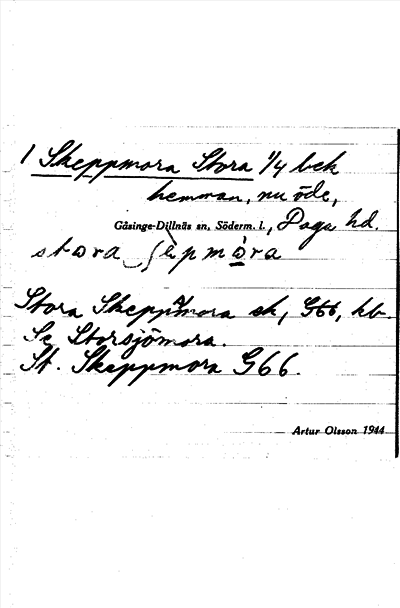 1 Skeppmora Stora 1/4 bek
hemman, nu öde,
Gåsinge-Dillnäs sn, Söderm. l., Daga hd.
stora ʃepmòra
Stora Skeppmora ek, G66, hb.
Se Storsjömora.
St. Skeppmora G66.
Artur Olsson 1944